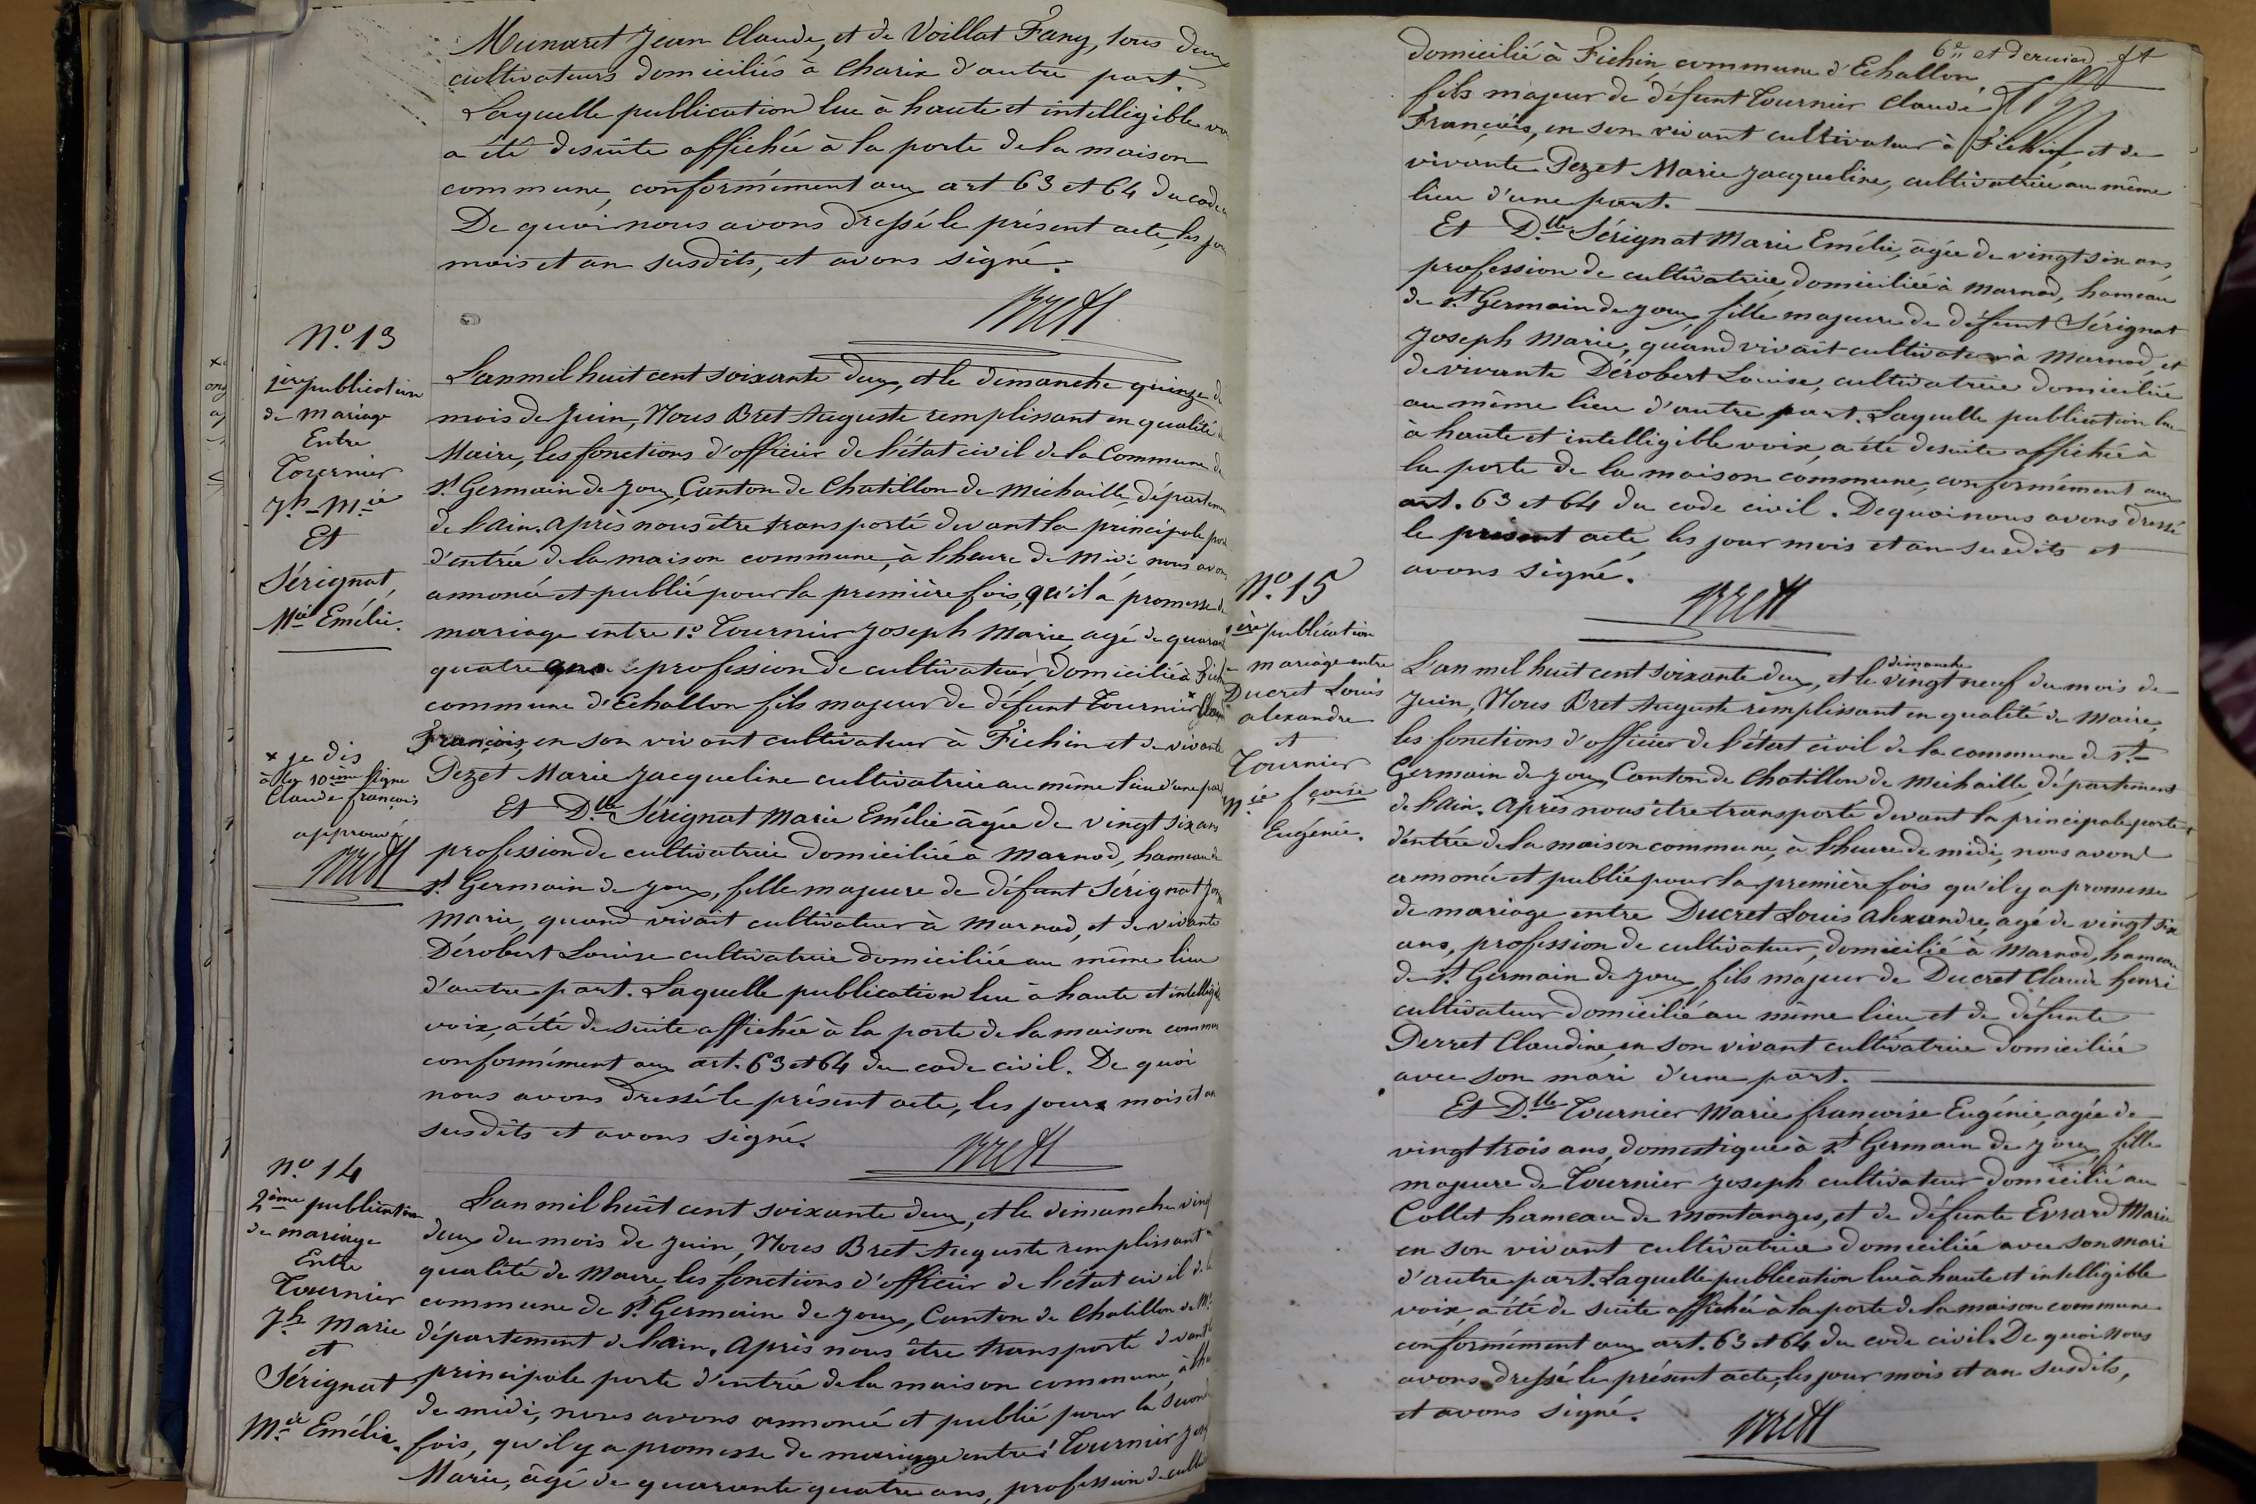 Munaret Jean Claude, et de Voillat Fany, tous deux
cultivateurs domiciliés à Charix d'autre part.
Laquelle publication lue à haute et intelligible
a été desuite affichée à la porte de la maison
commune, conformément aux art 63 et 64 du code
De quoi nous avons dressé le présent acte, les
mois et an susdits, et avons signé.
Bret
No. 13
1ère publication
de mariage
Entre
Tournier
Jh Mie
Et
Sérignat,
Mie Emélie.
L'an mil huit cent soixante deux, et le dimanche quinze
mois de Juin, Nous Bret Auguste remplissant en qualité
Maire, les fonctions d'officier de l'état civil de la Commune de
St Germain de Joux, Canton de Chatillon de Michaille, départem
de l'ain. après nous être transporté devant la principale
d'entrée de la maison commune, à l'heure de Midi nous avon
annoncé et publié pour la première fois, qu'il a promesse
mariage entre 1o Tournier Joseph Marie, agé de quarant
quatre ans profession de cultivateur, domicilié à
commune d'Echallon fils majeur de défunt Tournier x
François, en son vivant cultivateur à Fichin et de vivante
Pezet Marie Jacqueline cultivatrice au même lieu d'une part
x je dis
à la 10ème ligne
Claude françois
approuvé
Bret
Et Dlle Sérignat Marie Emélie âgée de vingt six ans
profession de cultivatrice domiciliée à Marnod, hameau de
St Germain de Joux, fille majeure de défunt Sérignat
Marie, quand vivait cultivateur à Marnod, et de vivante
Dérobert Louise cultivatrice domiciliée au même lieu
d'autre part. Laquelle publication lue à haute et intelligi
voix, a été de suite affichée à la porte de la maison commu
conformément aux art. 63 et 64 du code civil. De quoi
nous avons dressé le présent acte, les jours mois et an
susdits et avons signé.
Bret
No 14
2ème publication
de mariage
Entre
Tournier
Jh Marie
et
Sérignat
Mie Emélie.
L'an mil huit cent soixante deux, et le dimanche ving
deux du mois de Juin, Nous Bret Auguste remplissant
qualité de Maire, les fonctions d'officier de l'état civil de
commune de St Germain de Joux, Canton de Chatillon de
département de l'ain. Après nous être transporté devant
principale porte d'entrée de la maison commune,
de midi, nous avons annoncé et publié pour la second
fois, qu'il y a promesse de mariage entre Tournier
Marie, âgé de quarante quatre ans, profession de
6e et dernier ft
domicilié à Fichin, commune d'Echallon
fils majeur de défunt Tournier Claude
François, en son vivant cultivateur à Fichin, et de
vivante Pezet Marie Jacqueline, cultivatrice au même
lieu d'une part.
Et Dlle Sérignat Marie Emélie, âgée de vingt six ans
profession de cultivatrice, domiciliée à Marnod, hameau
de St Germain de Joux, fille majeure de défunt Sérignat
Joseph Marie, quand vivait cultivateur à Marnod, et
de vivante Dérobert Louise, cultivatrice domiciliée
au même lieu d'autre part. Laquelle publication lue
à haute et intelligible voix, a été desuite affichée à
la porte de la maison commune, conformément aux
art. 63 et 64 du code civil. De quoi nous avons dressé
le présent acte, les jour mois et an susdits et
avons signé.
Bret
No. 15
ère publication
mariage entre
Ducret Louis
alexandre
et
Tournier
Mie fçoise
Eugénie.
L'an mil huit cent soixante deux, et le dimanche vingt neuf du mois de
Juin, Nous Bret Auguste remplissant en qualité de Maire,
les fonctions d'officier de l'état civil de la commune de St
Germain de Joux, Canton de Chatillon de Michaille, département
de l'ain. Après nous être transporté devant la principale porte
d'entrée de la maison commune, à l'heure de midi, nous avons
annoncé et publié pour la première fois qu'il y a promesse
de mariage entre Ducret Louis Alexandre, agé de vingt six
ans, profession de cultivateur, domicilié à Marnod, hameau
de St Germain de Joux, fils majeur de Ducret Claude henri
cultivateur domicilié au même lieu et de défunte
Perret Claudine, en son vivant cultivatrice domiciliée
avec son mari d'une part.
Et Dlle Tournier Marie françoise Eugénie, agée de
vingt trois ans, domestique à St Germain de Joux, fille
majeure de Tournier Joseph cultivateur domicilié au
Collet hameau de Montanges, et de défunte Evrard Marie
en son vivant cultivatrice domiciliée avec son mari
d'autre part. Laquelle publication lue à haute et intelligible
voix, a été de suite affichée à la porte de la maison commune
conformément aux art. 63 et 64 du code civil. De quoi nous
avons dressé le présent acte, les jour mois et an susdits,
et avons signé.
Bret